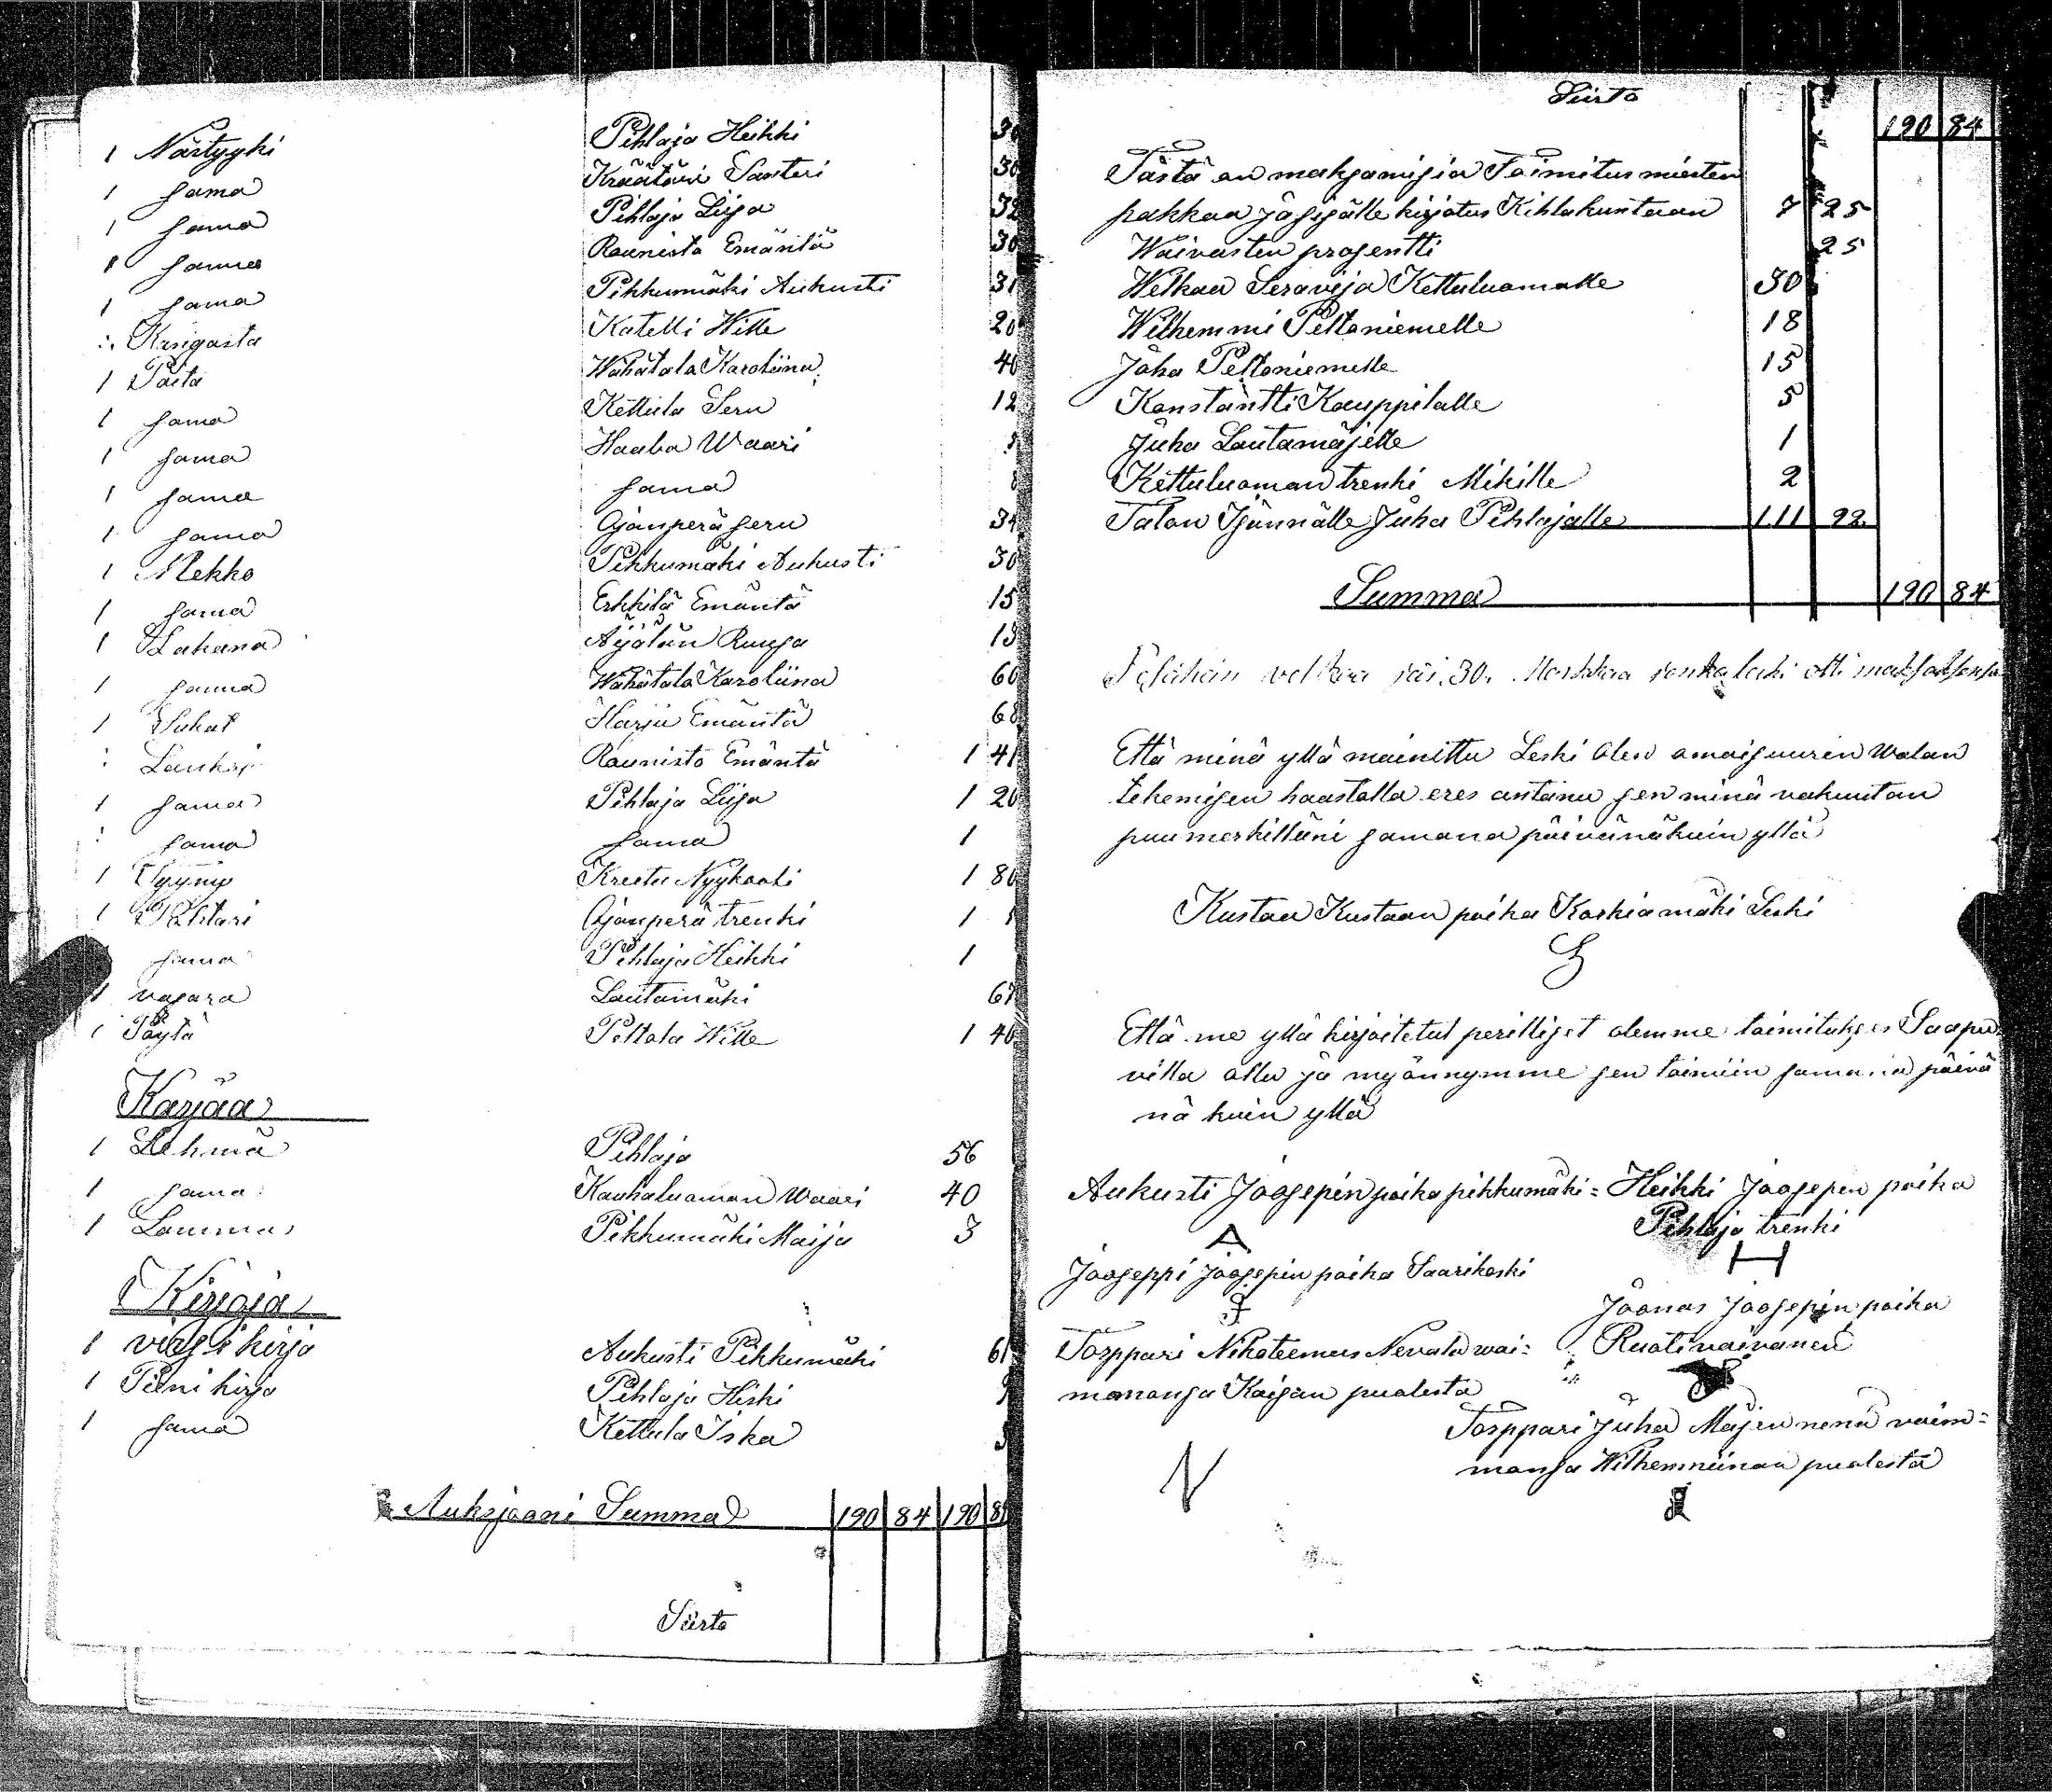 1 Närtyyki Pihlaja Heikki 30
1 sama Kräätäri Santeri 30
1 sama Pihlaja Liisa 32
1 sama Raunisto Emäntä 30
1 sama Pikkumäki Aukusti 31
Kangasta Katelli Wille 20
1 Paita Wähätala Karoliina 40
1 sama Kettula Seru 12
1 sama Haaba Waari
1 sama sama
1 sama Ojanperä seru 34
1 Mekko Pikkumäki Aukusti 30
1 sama Erkkilä Emäntä 15
1 Lakana Äijälän Ruusa 13
1 sama Wähätala Karoliina 60
1 Sukat Harju Emäntä 68
Raunisto Emäntä 1 41
1 sama Pihlaja Liisa 1 20
sama sama 1
1 Tyyny Kreetu Nyykooki 1 80
1 Ojanperä trenki 1
sama Pihlaja Heikki 1
1 vasara Lautamäki 67
1 Pöytä Peltola Wille 1 40
Karjaa
1 Lehmä Pihlaja 56
1 sama Kauhaluoman Waari 40
1 Lammas Pikkumäki Maija 3
Kirjoja
1 virsi kirja Aukusti Pikkumäki 61
1 Pieni kirja Pihlaja Hiski
1 sama Kettula Iska
Auksjooni Summa 190 84 190 84
Siirto
Siirto
190 84
Tästä on maksamisia Toimitus miesten
palkkaa ja sisälle kirjotus Kihlakuntaan 7 25
Waivasten prosentti 25
Welkaa Seravija Kettuluomalle 30
Wilhemmi Peltoniemelle 18
Joha Peltoniemelle 15
Konstantti Kauppilalle 5
Juha Lautamäjelle 1
Kettuluoman trenki Mikille 2
Talon Isännälle Juha Pihlajalle 111 92
Summa 190 84
velkaa jäi 30. Markkaa jonka leski otti maksaaksensa
Että minä yllä mainittu Leski olen omaisuuren walan
tekemisen haastolla eres antanu sen minä vakuutan
puumerkilläni samana päivänä kuin yllä
Kustaa Kustaan poika Koskiamäki Leski
Että me yllä kirjoitetut perilliset olemme toimitukses Saapu
villa ollu ja myönnymme sen toimiin samana päivä
nä kuin yllä
Aukusti Joosepin poika pikkumäki = Heikki Joosepin poika
Pihlaja trenki
A H
Jooseppi Joosepin poika Saarikoski
Joonas Joosepin poika
Torppari Nikoteemus Nevala wai= Ruotivaivanen
monansa Kaisan puolesta
Torppari Juha Mäjen nenä vaim=
monsa Wilhemmiinan puolesta
N